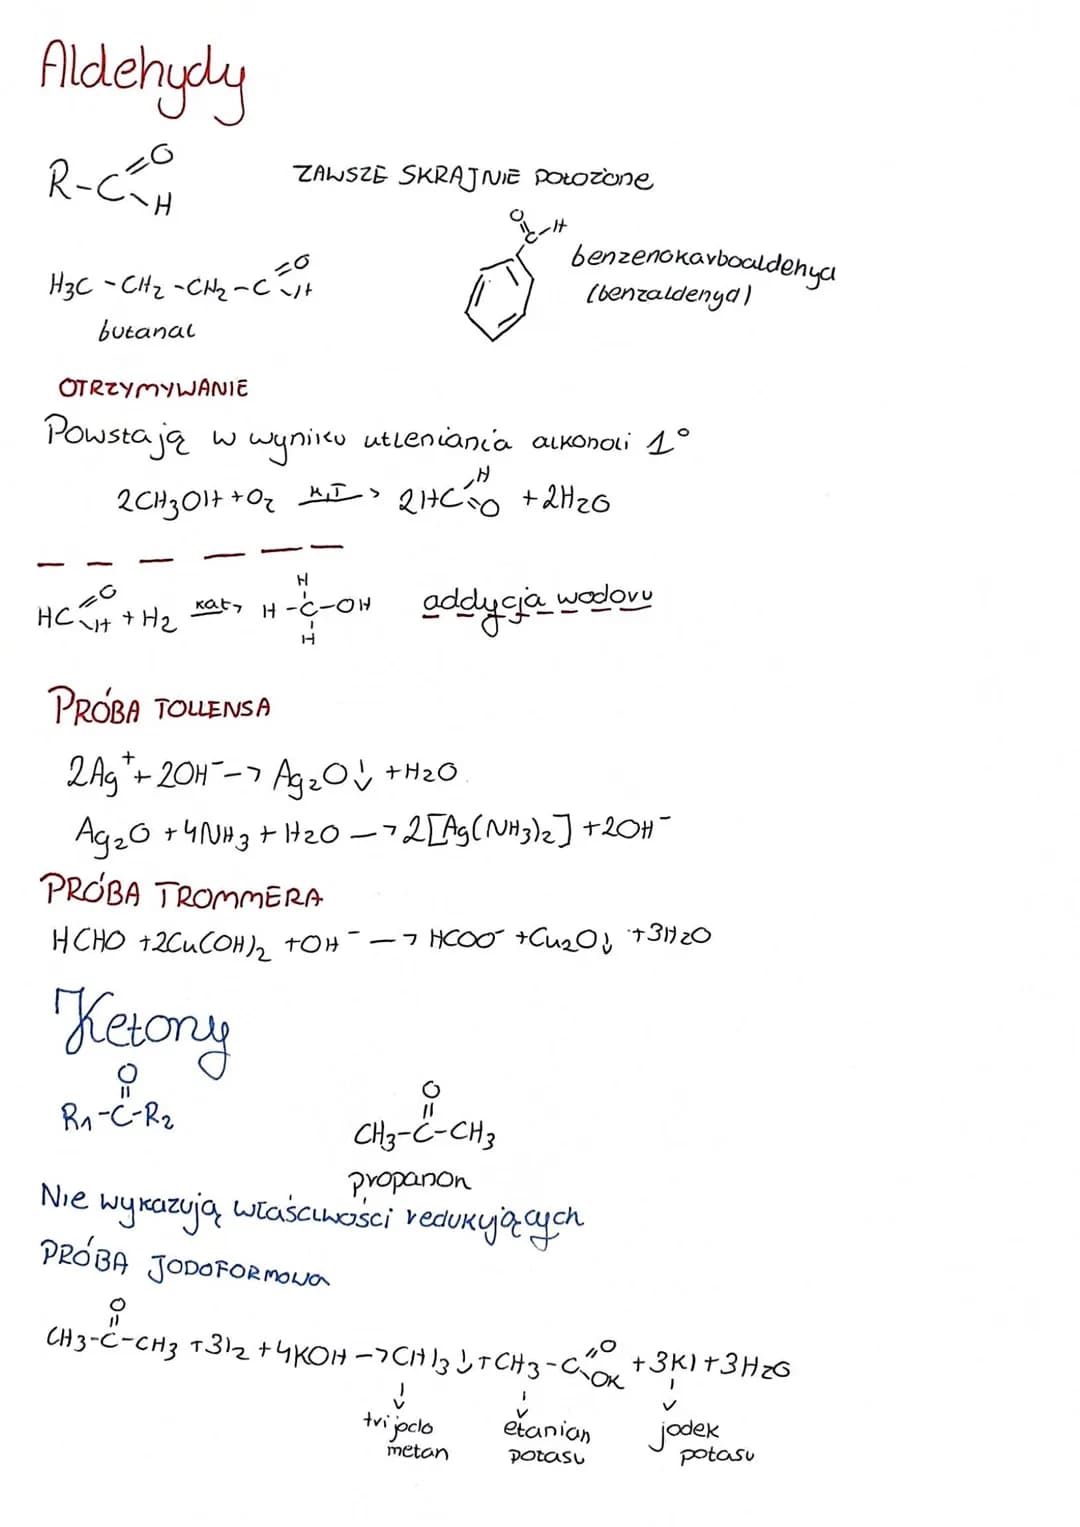 Aldehydy
R-C=O
-H
ZAWSZE SKRAJNIE POŁOŻONE
O=C-H
benzenokarboaldehyd
(benzaldehyd)
H3C-CH2-CH2-C=O
-H
butanal
OTRZYMYWANIE
Powstają w wyniku utleniania alkoholi 1°
2CH3OH + O2 K,T → 2HC=O + 2H2O
H
HC=O + H2 kat→ H-C-OH addycja wodoru
H
H
H
PRÓBA TOLLENSA
2Ag⁺ + 2OH⁻ → Ag2O↓ + H2O
Ag2O + 4NH3 + H2O → 2[Ag(NH3)2] + 2OH⁻
PRÓBA TROMMERA
HCHO + 2Cu(OH)2 + OH⁻ → HCOO⁻ + Cu2O↓ + 3H2O
Ketony
O
R1-C-R2
O
CH3-C-CH3
propanon
Nie wykazują właściwości redukujących
PRÓBA JODOFORMOWA
O
CH3-C-CH3 + 3I2 + 4KOH → CHI3↓ + CH3-C=O + 3KI + 3H2O
OK
trijodo
metan
etanian
potasu
jodek
potasu